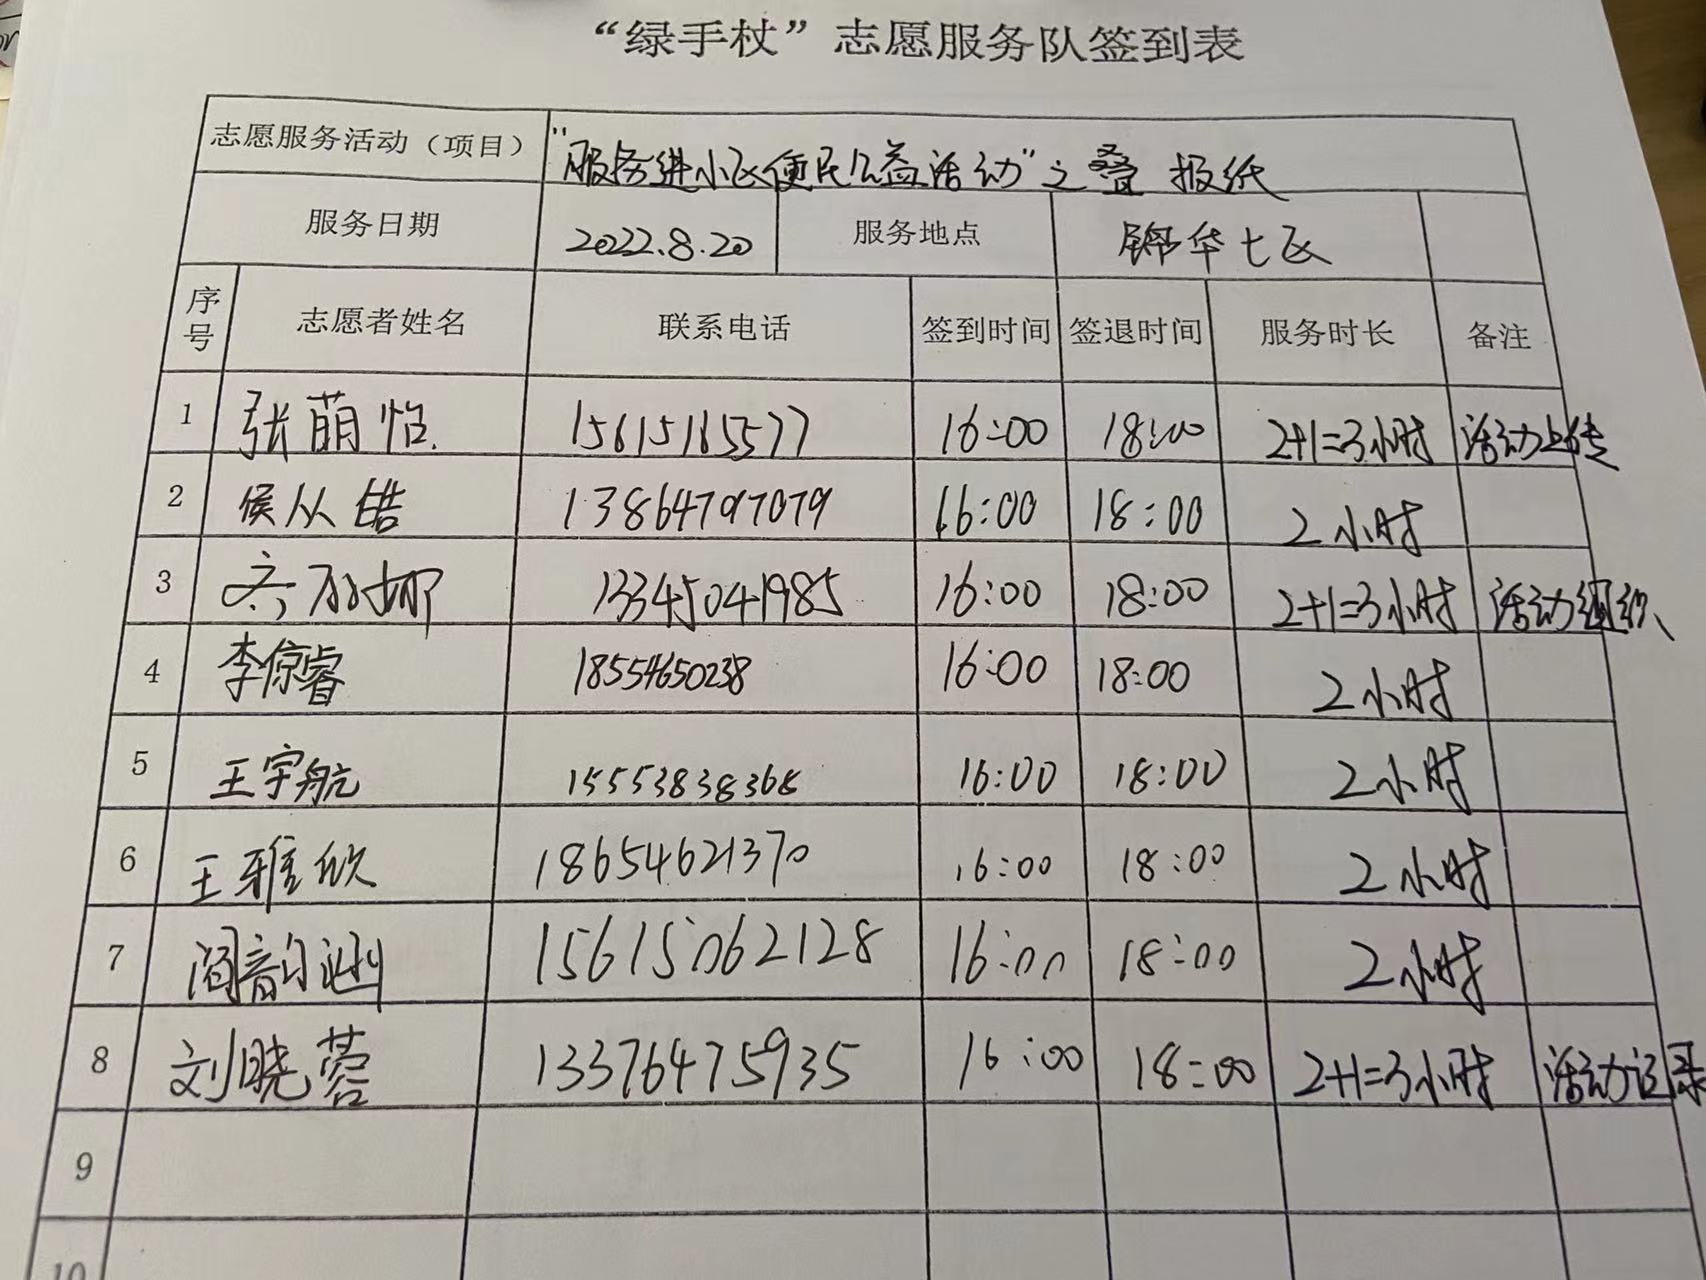 “绿手杖”志愿服务队签到表
志愿服务活动（项目） “服务进小区便民公益活动”之叠报纸
服务日期 2022.8.20 服务地点 锦华七区
序号 志愿者姓名 联系电话 签到时间 签退时间 服务时长 备注
1 张萌怡 15615165577 16:00 18:00 2+1=3小时 活动上传
2 侯从皓 13864797079 16:00 18:00 2小时
3 13345041985 16:00 18:00 2+1=3小时 活动组织
4 李倞睿 18554650238 16:00 18:00 2小时
5 王宇航 15553838368 16:00 18:00 2小时
6 王雅欣 18654621370 16:00 18:00 2小时
7 15615062128 16:00 18:00 2小时
8 刘晓蓉 13376475935 16:00 18:00 2+1=3小时 活动记录
9
10